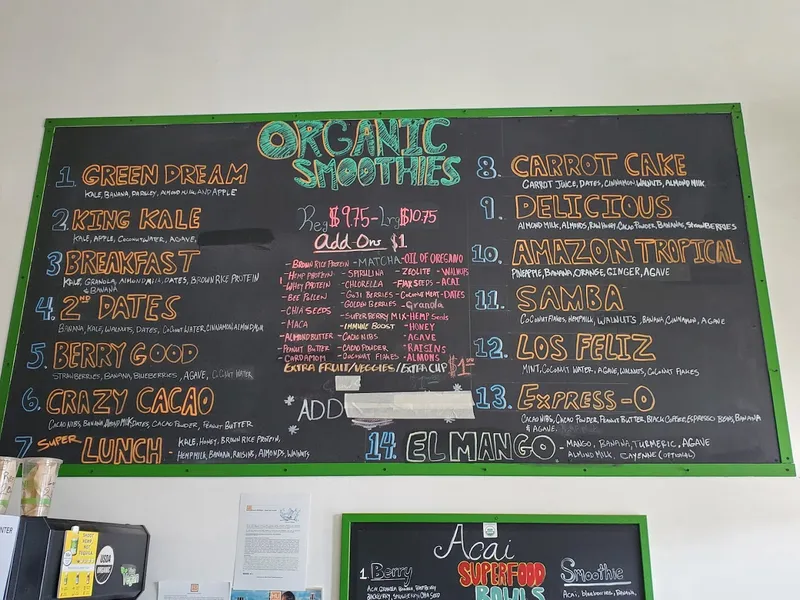 ORGANIC
SMOOTHIES
1. GREEN DREAM
KALE, BANANA, PARSLEY, ALMOND MILK AND APPLE
2. KING KALE
KALE, APPLE, COCONUT WATER, AGAVE,
3 BREAKFAST
KALE, GRANOLA, ALMOND MILK, DATES, BROWN RICE PROTEIN
& BANANA
4. 2ND DATES
BANANA, KALE, WALNUTS, DATES, COCONUT WATER, CINNAMON,
5. BERRY GOOD
STRAWBERRIES, BANANA, BLUEBERRIES, AGAVE,
6. CRAZY CACAO
CACAO NIBS, BANANA, ALMOND MILK, DATES, CACAO POWDER, PEANUT BUTTER
7 SUPER LUNCH
KALE, HONEY, BROWN RICE PROTEIN,
- HEMP MILK, BANANA, RAISINS, ALMONDS, WALNUTS
Reg $9.75 - Lrg $10.75
Add-Ons $1
- BROWN RICE PROTEIN - MATCHA - OIL OF OREGANO
- HEMP PROTEIN - SPIRULINA - ZEOLITE - WALNUTS
- WHEY PROTEIN - CHLORELLA - FLAX SEEDS - ACAI
- BEE POLLEN - GOJI BERRIES - COCONUT MEAT - DATES
- CHIA SEEDS - GOLDEN BERRIES - Granola
- SUPERBERRY MIX - HEMP Seeds
- MACA - IMMUNE BOOST - HONEY
- ALMOND BUTTER - CACAO NIBS - AGAVE
- PEANUT BUTTER - CACAO POWDER - RAISINS
- CARDAMOM - COCONUT FLAKES - ALMONS
EXTRA FRUIT/VEGGIES/EXTRA CUP
ADD
8. CARROT CAKE
CARROT JUICE, DATES, CINNAMON, WALNUTS, ALMOND MILK
9. DELICIOUS
ALMOND MILK, ALMONDS, RAW HONEY, CACAO POWDER, BANANAS, STRAWBERRIES
10. AMAZON TROPICAL
PINEAPPLE, BANANA, ORANGE, GINGER, AGAVE
11. SAMBA
COCONUT FLAKES, HEMP MILK, WALNUTS, BANANA, CINNAMON, AGAVE
12. LOS FELIZ
MINT, COCONUT WATER, AGAVE, WALNUTS, COCONUT FLAKES
13. EXPRESS-O
CACAO NIBS, CACAO POWDER, PEANUT BUTTER, BLACK COFFEE, ESPRESSO BEANS, BANANA
& AGAVE
14. EL MANGO
- MANGO, BANANA, TURMERIC, AGAVE
- ALMOND MILK, CAYENNE (OPTIONAL)
Acai
SUPERFOOD
BOWLS
1. Berry
Smoothie
Acai, blueberries, BANANA,
USDA
ORGANIC